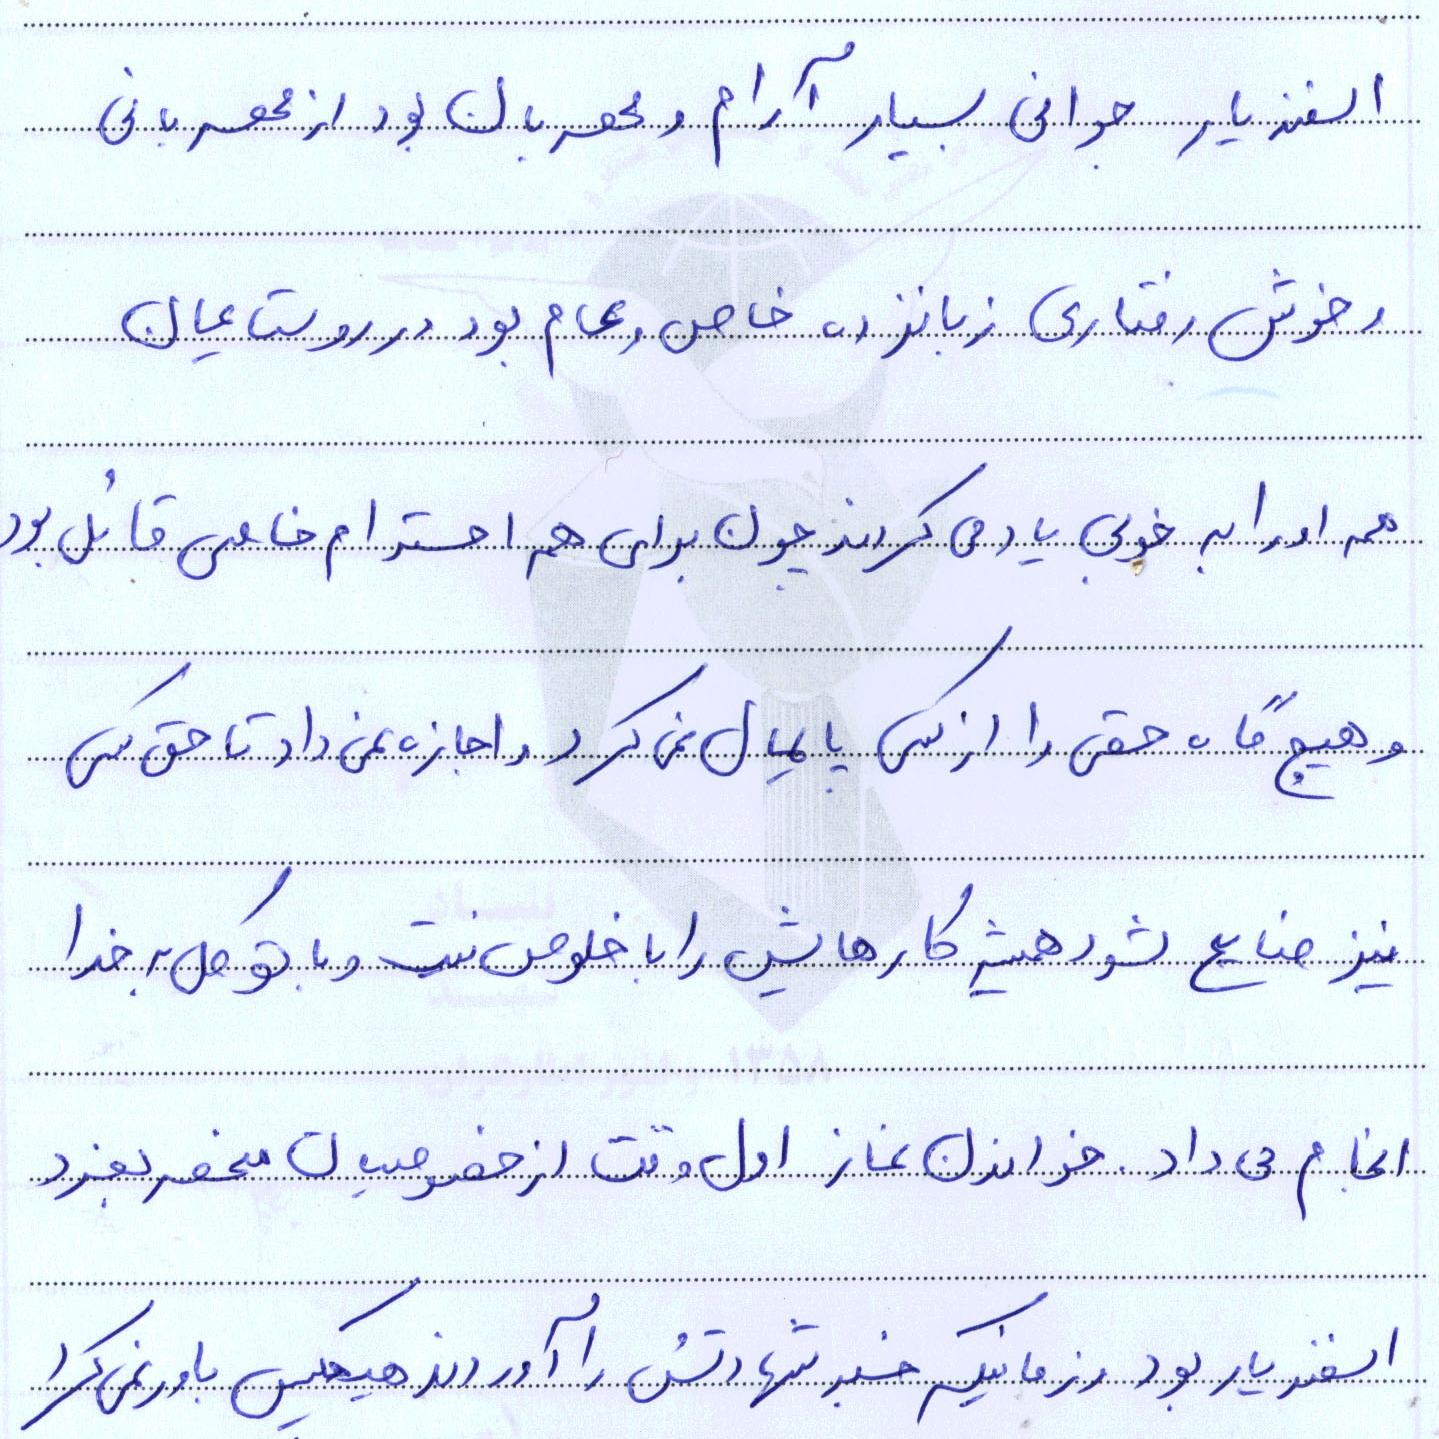 اسفندیار جوانی بسیار آرام و مهربان بود از مهربانی
و خوش رفتاری زبانزد خاص و عام بود در روستا عیان
همه او را به خوبی یاد می کردند چون برای همه احترام خاصی قائل بود
و هیچ گاه حقی را از کسی پایمال نمی کرد و اجازه نمی داد تا حق کسی
نیز ضایع شود همیشه کارهایش را با خلوص نیت و با توکل به خدا
انجام می داد. خواندن نماز اول وقت از خصوصیات منحصر بفرد
اسفندیار بود و زمانیکه خبر شهادتش را آوردند هیچکس باور نمی کرد
۱۳۵۸